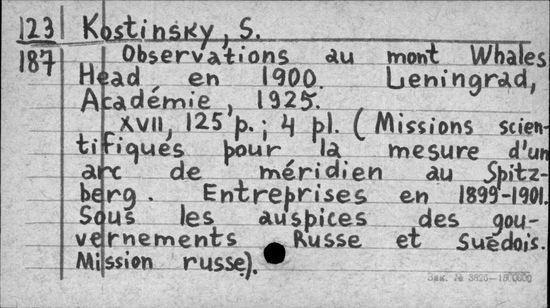 123 Kostinsky, S.
187 Observations au mont Whales
Head en 1900. Leningrad,
Académie, 1925.
XVII, 125 p.; 4 pl. (Missions scien-
tifiques pour la mesure d'un
arc de méridien au Spitz-
berg. Entreprises en 1899-1901.
Sous les auspices des gou-
vernements Russe et Suédois.
Mission russe).